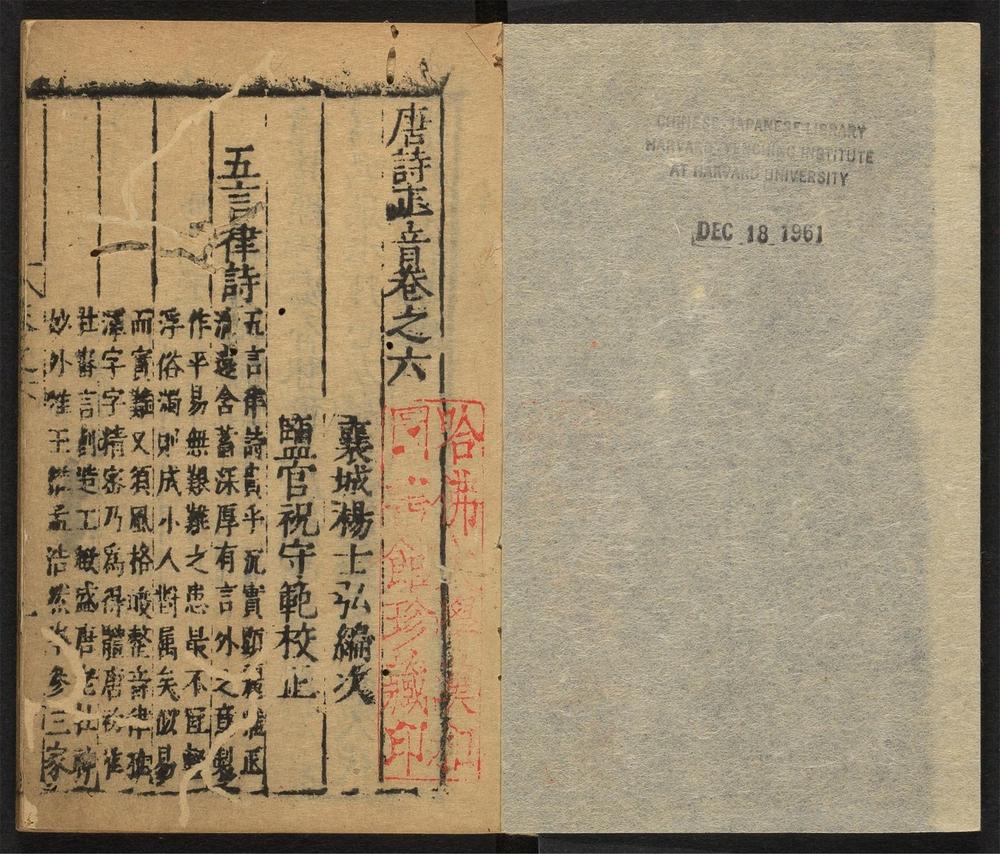 CHINESE-JAPANESE LIBRARY
HARVARD-YENCHING INSTITUTE
AT HARVARD UNIVERSITY
DEC 18 1961
唐詩正音卷之六
哈佛大學漢和
圖書館珍藏印
襄城楊士弘編次
鹽官祝守範校正
五言律詩
五言律詩貴乎沉實雅正
清遠含蓄深厚有言外之意製
作平易無艱難之患最不宜輕
浮俗濁則成小人對属矣似易
而實難又須風格峻整音律
渾字字精密乃爲得體唐初惟
杜審言創造工緻盛唐老杜神
妙外惟王維孟浩然岑參三家